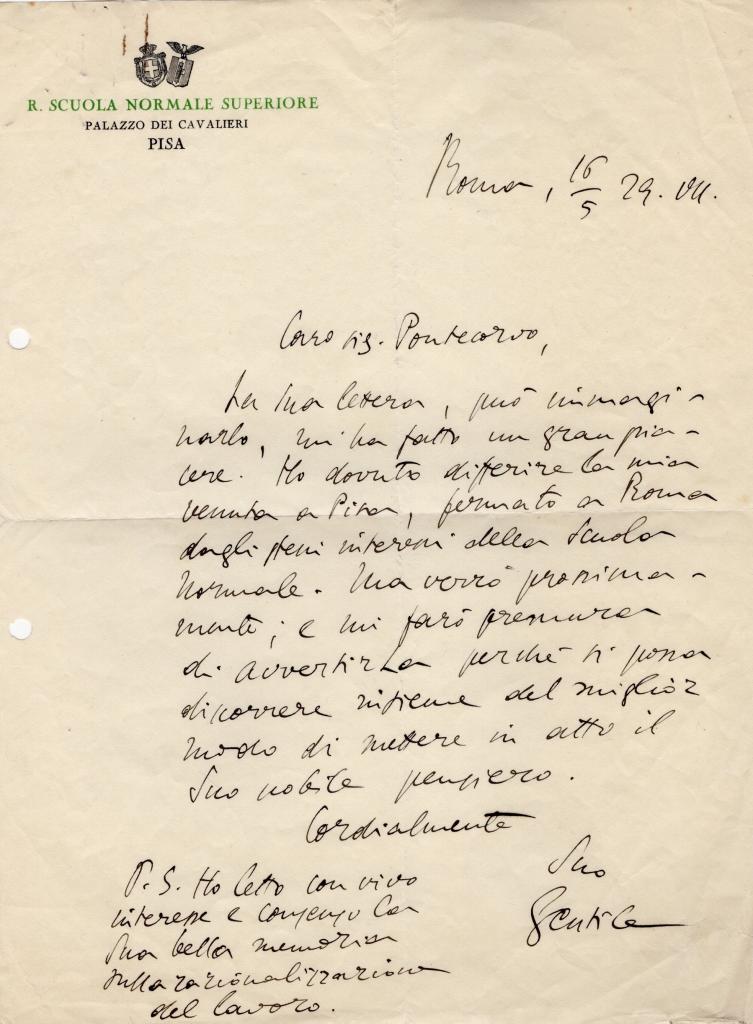 R. SCUOLA NORMALE SUPERIORE
PALAZZO DEI CAVALIERI
PISA
Roma, 16/5 29. VII.
Caro sig. Pontecorvo,
La Sua lettera, può immagi-
narlo, mi ha fatto un gran pia-
cere. Ho dovuto differire la mia
venuta a Pisa, fermato a Roma
dagli stessi interessi della Scuola
Normale. Ma verrò prossima-
mente; e mi farò premura
di avvertirLa perché si possa
discorrere insieme del miglior
modo di mettere in atto il
Suo nobile pensiero.
Cordialmente
Suo
Gentile
P. S. Ho letto con vivo
interesse e consenso la
Sua bella memoria
sulla razionalizzazione
del lavoro.